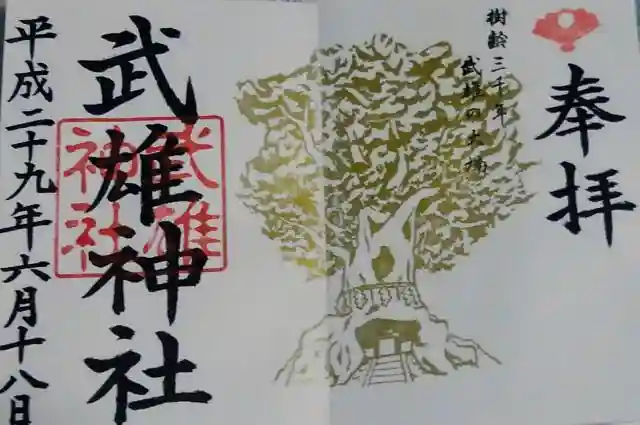 奉拝
樹齢三千年
武雄の大楠
武雄神社
武雄
神社
平成二十九年六月十八日